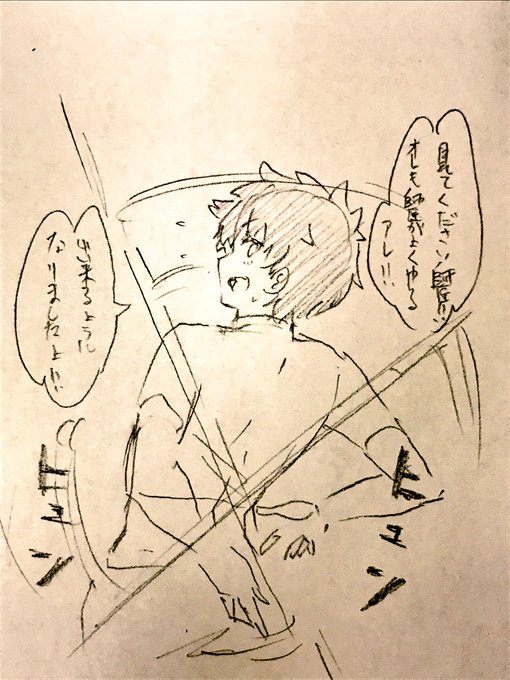 見てください師匠!!
オレも師匠がよくやる
アレ!!
出来るように
なりましたよ!!
ヒュン
ヒュン